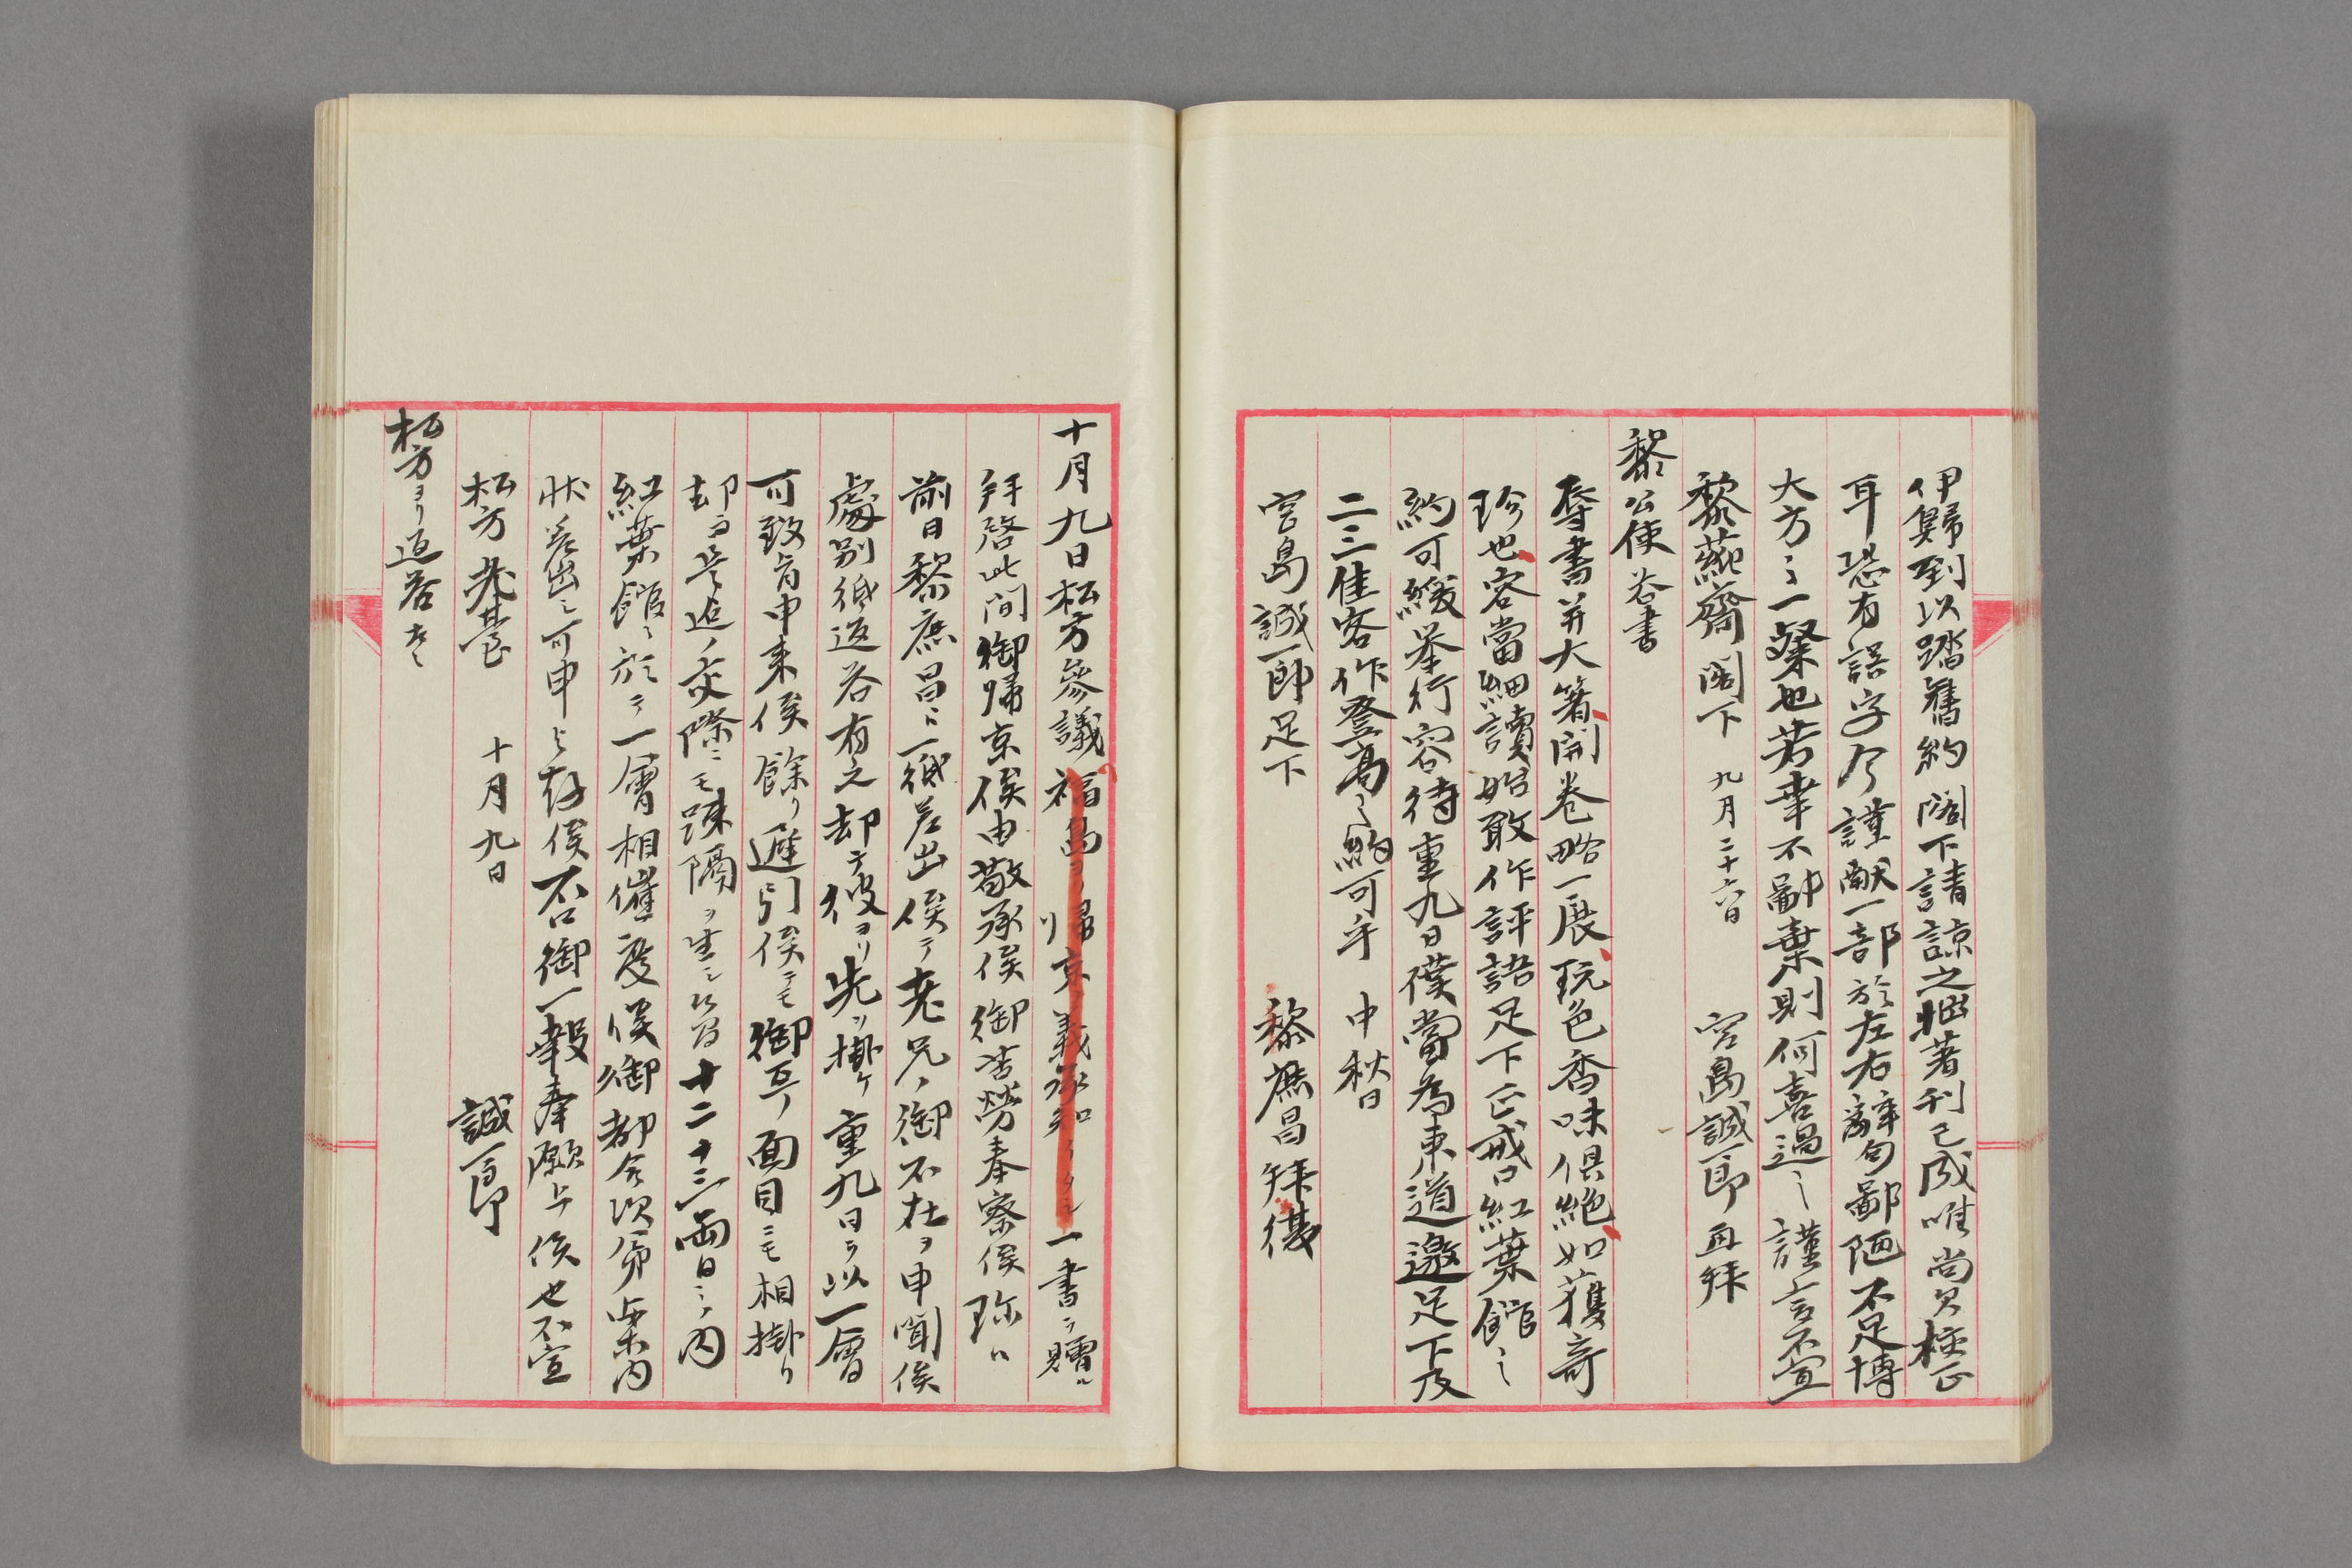 伊歸到以踏舊約閣下請諒之拙著刊已成唯尚欠校正
耳恐有誤字今謹献一部於左右辭句鄙陋不足博
大方之一粲也若幸不鄙棄則何喜過之謹言不宣
黎蒓齋閣下 九月二十六日 宮島誠一郎再拜
黎公使答書
辱書并大箸開卷略一展玩色香味俱絶如獲奇
珍也容當細讀始敢作評語足下正戒口紅葉館之
約可緩举行容待重九日僕當為東道邀足下及
二三佳客作登高之約可乎 中秋日
宮島誠一郎足下 黎庶昌拜復
十月九日松方參議福島ヨリ帰京ノ義承知シタシ一書ヲ贈ル
拜啓此間御帰京候由敬承候御苦勞奉察候陳ハ
前日黎庶昌ニ一紙差出候テ老兄ノ御不在ヲ申聞候
處別紙返答有之却テ彼ヨリ先ヲ掛ケ重九日ヲ以一會
可致旨申来候餘リ遲引候テモ御互ノ面目ニモ相掛リ
却而是迄ノ交際ニモ踈隔ヲ生シ候間十二十三両日之内
紅葉館ニ於テ一會相催度候御都合次第案内
状差出シ可申ト存候否御一報奉願上候也不宣
松方老臺 十月九日 誠一郎
松方ヨリ返答書